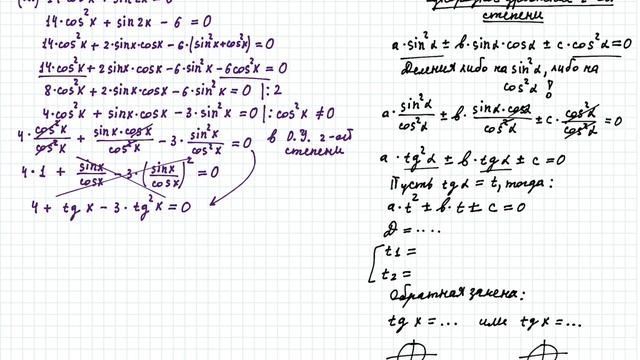 14·cos²x + sin2x - 6 = 0
14·cos²x + 2·sinx·cosx - 6·(sin²x+cos²x) = 0
14·cos²x + 2sinx·cosx - 6·sin²x - 6cos²x = 0
8·cos²x + 2·sinx·cosx - 6·sin²x = 0 |:2
4·cos²x + sinx·cosx - 3·sin²x = 0 |:cos²x ≠ 0
4·cos²x/cos²x + sinx·cosx/cos²x - 3·sin²x/cos²x = 0 в О.У. 2-ой степени
4·1 + sinx/cosx - 3·(sinx/cosx)² = 0
4 + tgx - 3·tg²x = 0
степени
a·sin²α ± b·sinα·cosα ± c·cos²α = 0
Деления либо на sin²α, либо на
cos²α
a·sin²α/cos²α ± b·sinα·cosα/cos²α ± c·cos²α/cos²α = 0
a·tg²α ± b·tgα ± c = 0
Пусть tgα = t, тогда:
a·t² ± b·t ± c = 0
D = ....
t1 =
t2 =
Обратная замена:
tgx = ... или tgx = ...